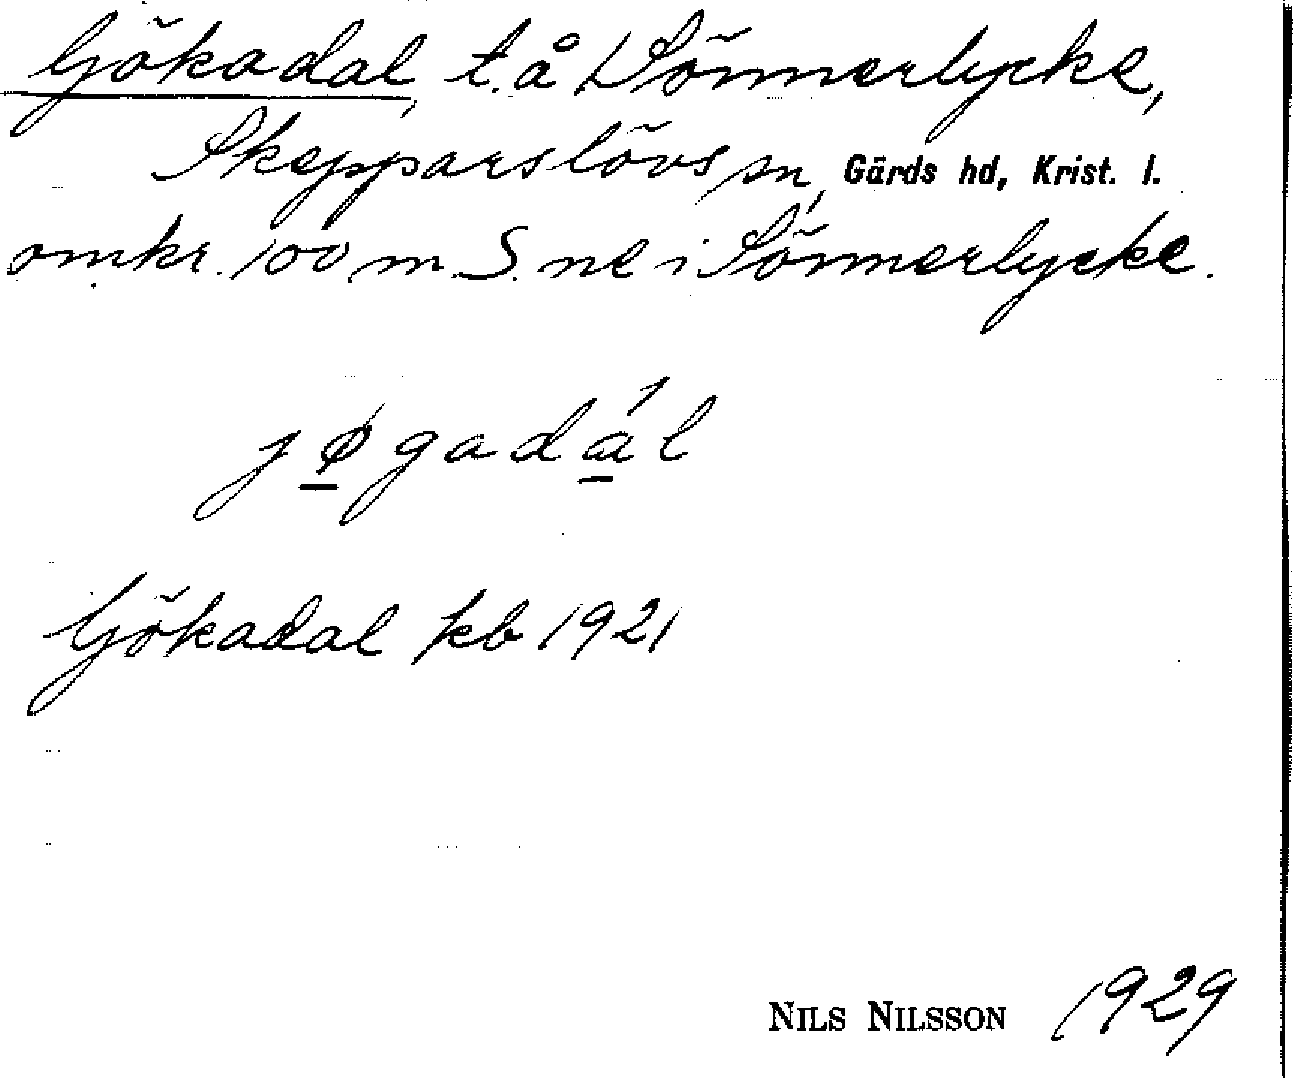 Gökadal, t. å Sönnerlycke,
Skepparslövs sn, Gärds hd, Krist. l.
omkr. 100 m S. ne i Sönnerlycke.
jøgadál
Gökadal kb 1921
NILS NILSSON 1929